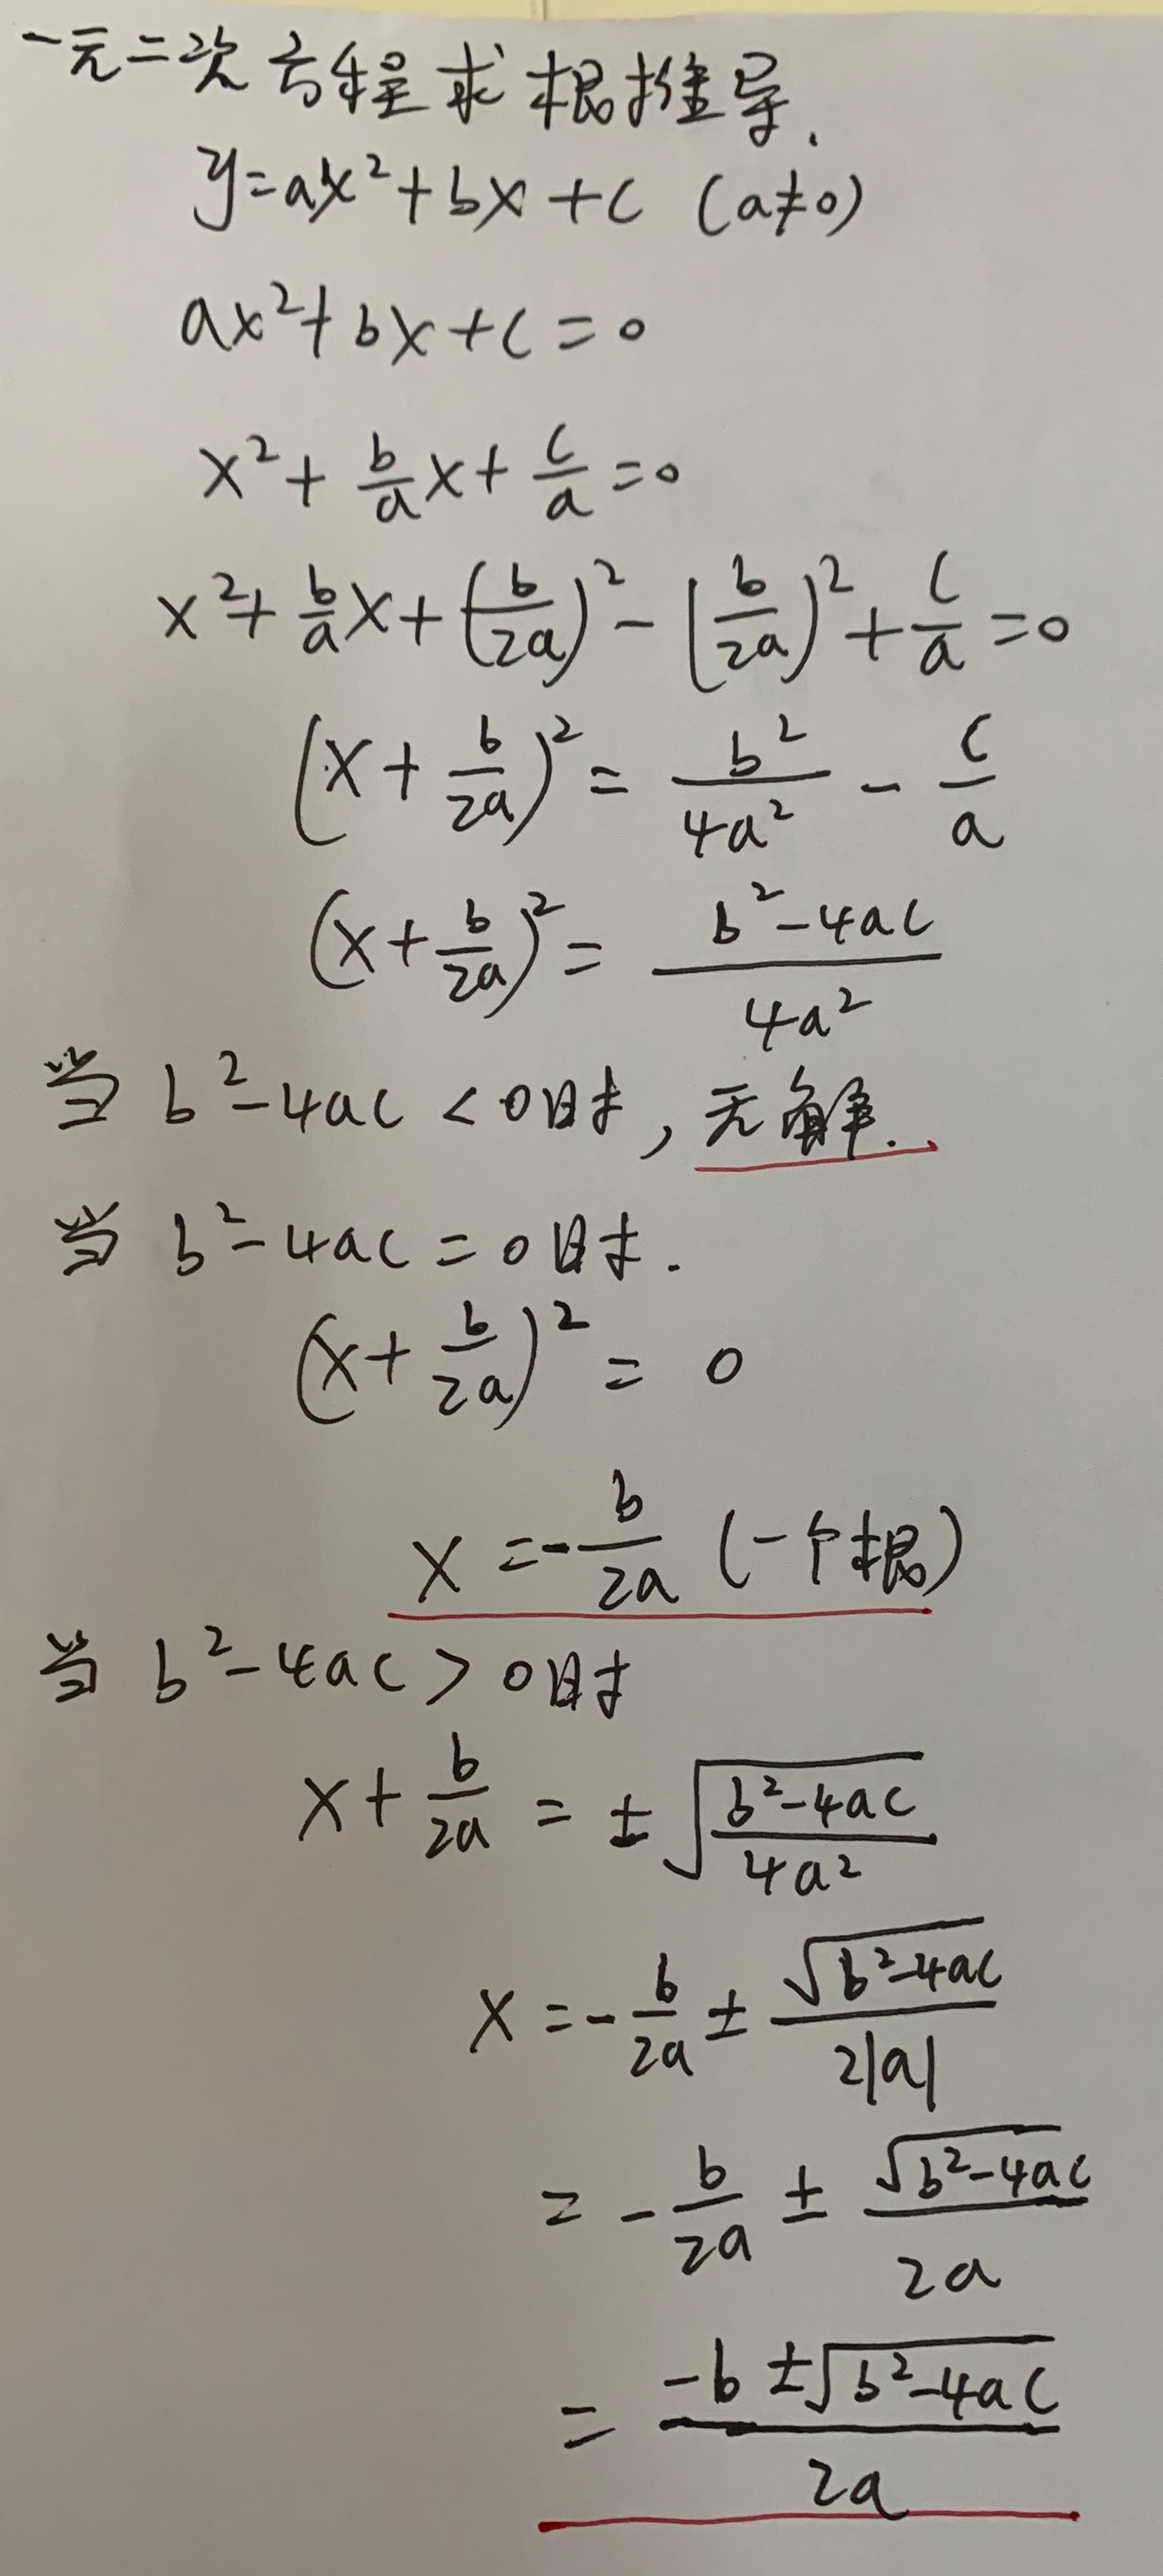 一元二次方程求根推导.
y=ax²+bx+c (a≠0)
ax²+bx+c=0
x²+\frac{b}{a}x+\frac{c}{a}=0
x²+\frac{b}{a}x+(\frac{b}{2a})²-(\frac{b}{2a})²+\frac{c}{a}=0
(x+\frac{b}{2a})²=\frac{b²}{4a²}-\frac{c}{a}
(x+\frac{b}{2a})²=\frac{b²-4ac}{4a²}
当 b²-4ac<0时,无解.
当 b²-4ac=0时.
(x+\frac{b}{2a})²=0
x=-\frac{b}{2a} (一个根)
当 b²-4ac>0时
x+\frac{b}{2a}=±\sqrt{\frac{b²-4ac}{4a²}}
x=-\frac{b}{2a}±\frac{\sqrt{b²-4ac}}{2|a|}
=-\frac{b}{2a}±\frac{\sqrt{b²-4ac}}{2a}
=\frac{-b±\sqrt{b²-4ac}}{2a}